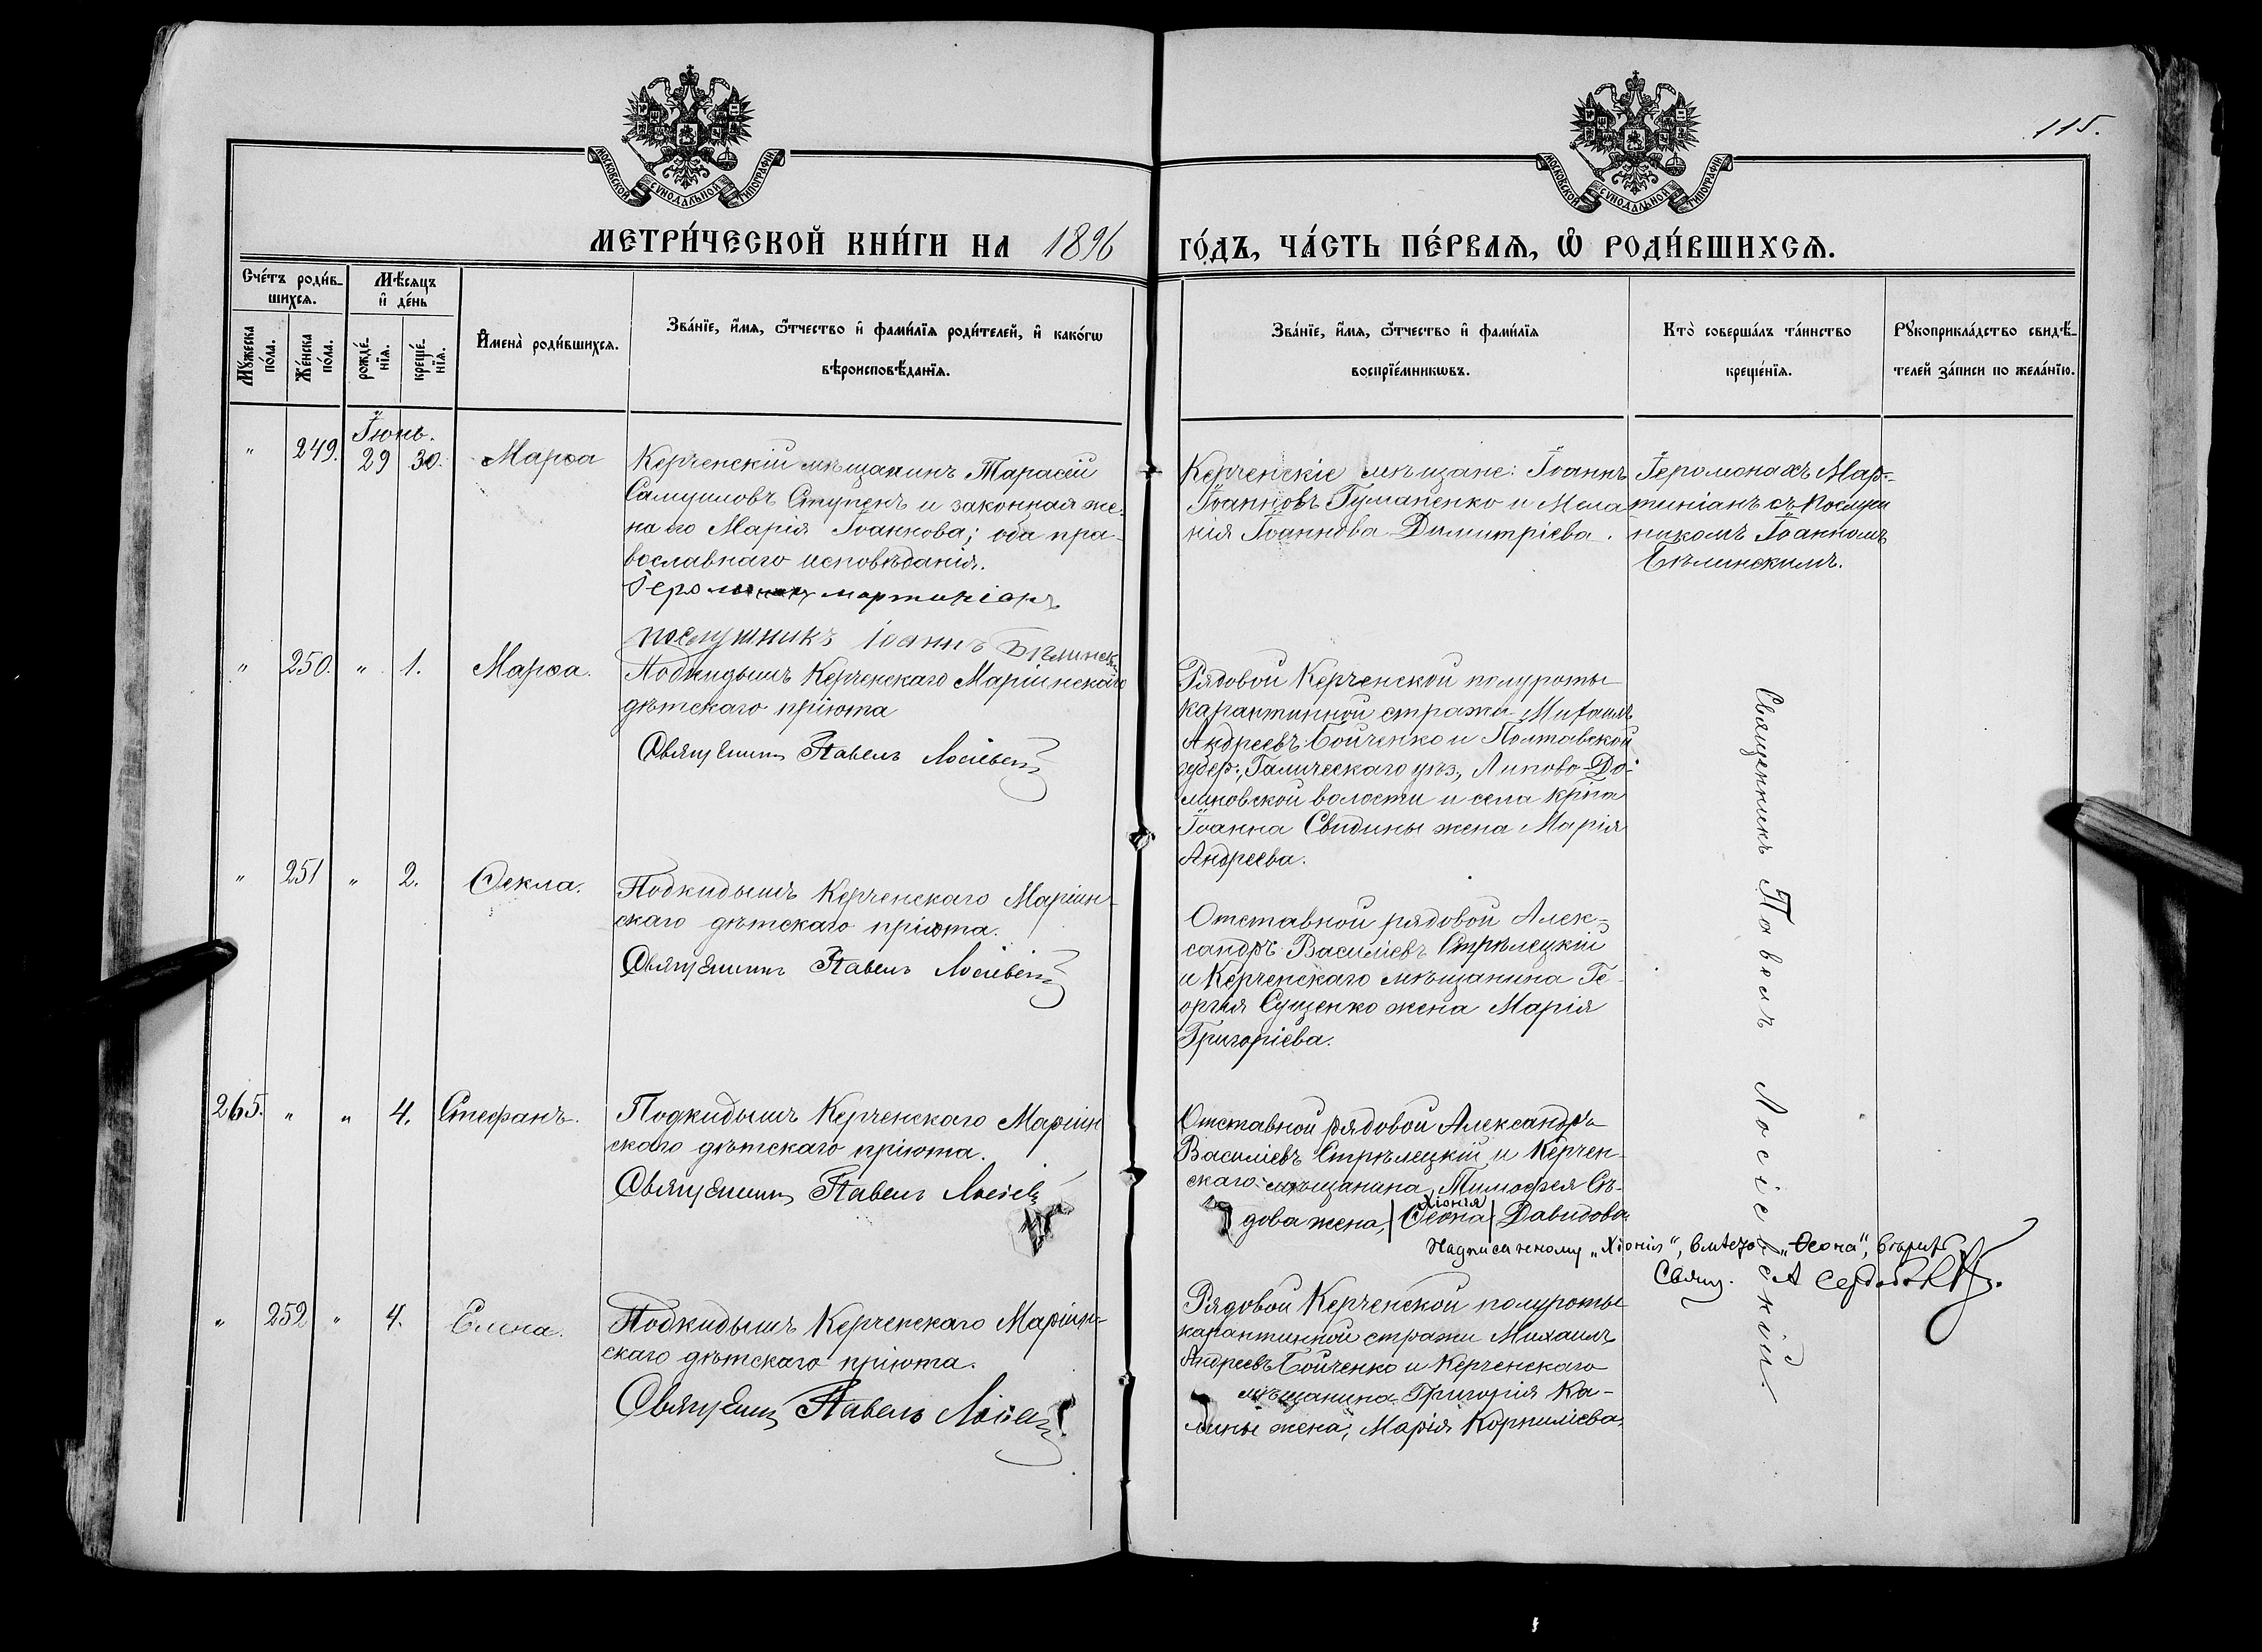 115.
МОСКОВСКОЙ СУНОДАЛЬНОЙ ТИПОГРАФІИ
МОСКОВСКОЙ СУНОДАЛЬНОЙ ТИПОГРАФІИ
МЕТРИ́ЧЕСКОЙ КНИ́ГИ НА 1896
ГО́ДЪ, ЧА́СТЬ ПЕ́РВАЯ, Ѡ҆ РОДИ́ВШИХСЯ.
Сче́тъ роди́в-
шихся.
Мѣ́сяцъ
и҆ де́нь
Мꙋ́жеска
по́ла.
Же́нска
по́ла.
рожде́-
нїя.
креще́-
нїя.
И҆мена̀ роди́вшихся.
Зва́нїе, и҆́мя, ѻ҆́тчество и҆ фами́лїя роди́телей, и҆ како́гѡ
вѣроисповѣ́данїя.
Зва́нїе, и҆́мя, ѻ҆́тчество и҆ фами́лїя
воспрїе́мникѡвъ.
Кто̀ соверша́лъ та́инство
креще́нїя.
Рꙋкоприкла́дство свидѣ́-
телей за́писи по жела́нїю.
Іюнь.
" 249. 29 30. Марѳа
Керченскій мѣщанинъ Тарасій
Самуиловъ Ступень и законная же-
на его Марія Іоаннова; оба пра-
вославнаго исповѣданія.
Іеромонахъ Мартиніанъ
послушникъ Іоаннъ Бѣлинскій
Керченскіе мѣщане: Іоаннъ
Іоанновъ Гуманенко и Мела
нія Іоаннова Димитріева.
Іеромонахъ Мар-
тиніанъ съ послуш
никомъ Іоанномъ
Бѣлинскимъ.
" 250. " 1. Марѳа.
Подкидышъ Керченскаго Маріинскаго
дѣтскаго пріюта
Священникъ Павелъ Лосіевскій
Рядовой Керченской полуроты
карантинной стражи Михаилъ
Андреевъ Бойченко и Полтавской
губер., Галическаго уѣз., Липово-До-
линовской волости и села кр-на
Іоанна Свидины жена Марія
Андреева.
Священникъ Павелъ Лосіевскій.
" 251 " 2. Ѳекла.
Подкидышъ Керченскаго Маріин-
скаго дѣтскаго пріюта.
Священникъ Павелъ Лосіевскій
Отставной рядовой Алек-
сандръ Василіевъ Стрѣлецкій
и Керченскаго мѣщанина Ге-
оргія Сущенко жена Марія
Григоріева.
265. " " 4. Стефанъ.
Подкидышъ Керченскаго Маріин
скаго дѣтскаго пріюта.
Священникъ Павелъ Лосіевскій
Отставной рядовой Александръ
Василіевъ Стрѣлецкій и Керчен-
скаго мѣщанина Тимоѳея Сѣ-
Хіонія
дова жена, (Ѳеона) Давидова.
Надписанному „Хіонія", вмѣсто „Ѳеона", вѣрить
Свящ. А Сердобольскій.
" 252 " 4. Елена.
Подкидышъ Керченскаго Маріин-
скаго дѣтскаго пріюта.
Священникъ Павелъ Лосіевскій
Рядовой Керченской полуроты
карантинной стражи Михаилъ
Андреевъ Бойченко и Керченскаго
мѣщанина Григорія Ка-
лины жена, Марія Корниліева.